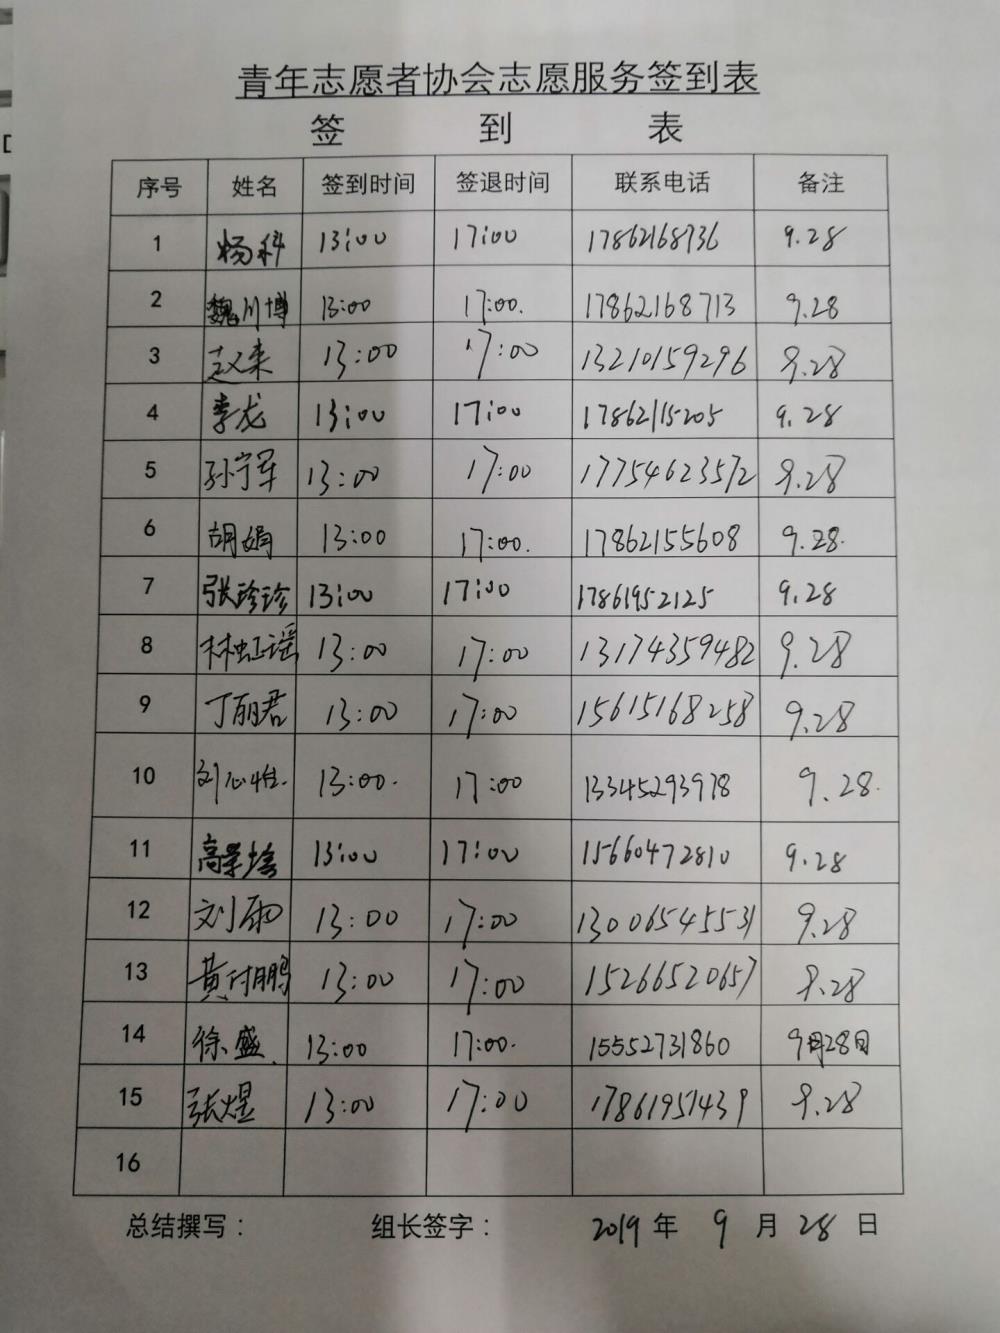 青年志愿者协会志愿服务签到表
签 到 表
序号 姓名 签到时间 签退时间 联系电话 备注
1 杨科 13:00 17:00 17862168736 9.28
2 魏川博 13:00 17:00. 17862168713 9.28
3 赵义来 13:00 17:00 13210159296 9.28
4 李龙 13:00 17:00 17862115205 9.28
5 孙宁军 13:00 17:00 17754623572 9.28
6 胡娟 13:00 17:00. 17862155608 9.28.
7 张珍珍 13:00 17:00 17861952125 9.28
8 林虹谣 13:00 17:00 13174359482 9.28
9 丁丽君 13:00 17:00 15615168258 9.28
10 刘心怡. 13:00. 17:00 13345293978 9.28.
11 13:00 17:00 15660472810 9.28
12 刘雨 13:00 17:00 13006545531 9.28
13 黄付鹏 13:00 17:00 15266520657 9.28
14 徐盛 13:00 17:00. 15552731860 9月28日
15 张煜 13:00 17:00 17861951439 9.28
16
总结撰写： 组长签字： 2019 年 9 月 28 日